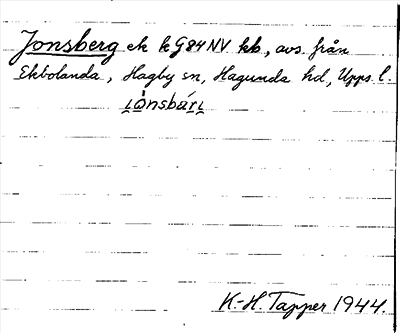 Jonsberg ek k G84NV kb, avs. från
Ekbolanda, Hagby sn, Hagunda hd, Upps. l.
K-H. Tapper 1944.